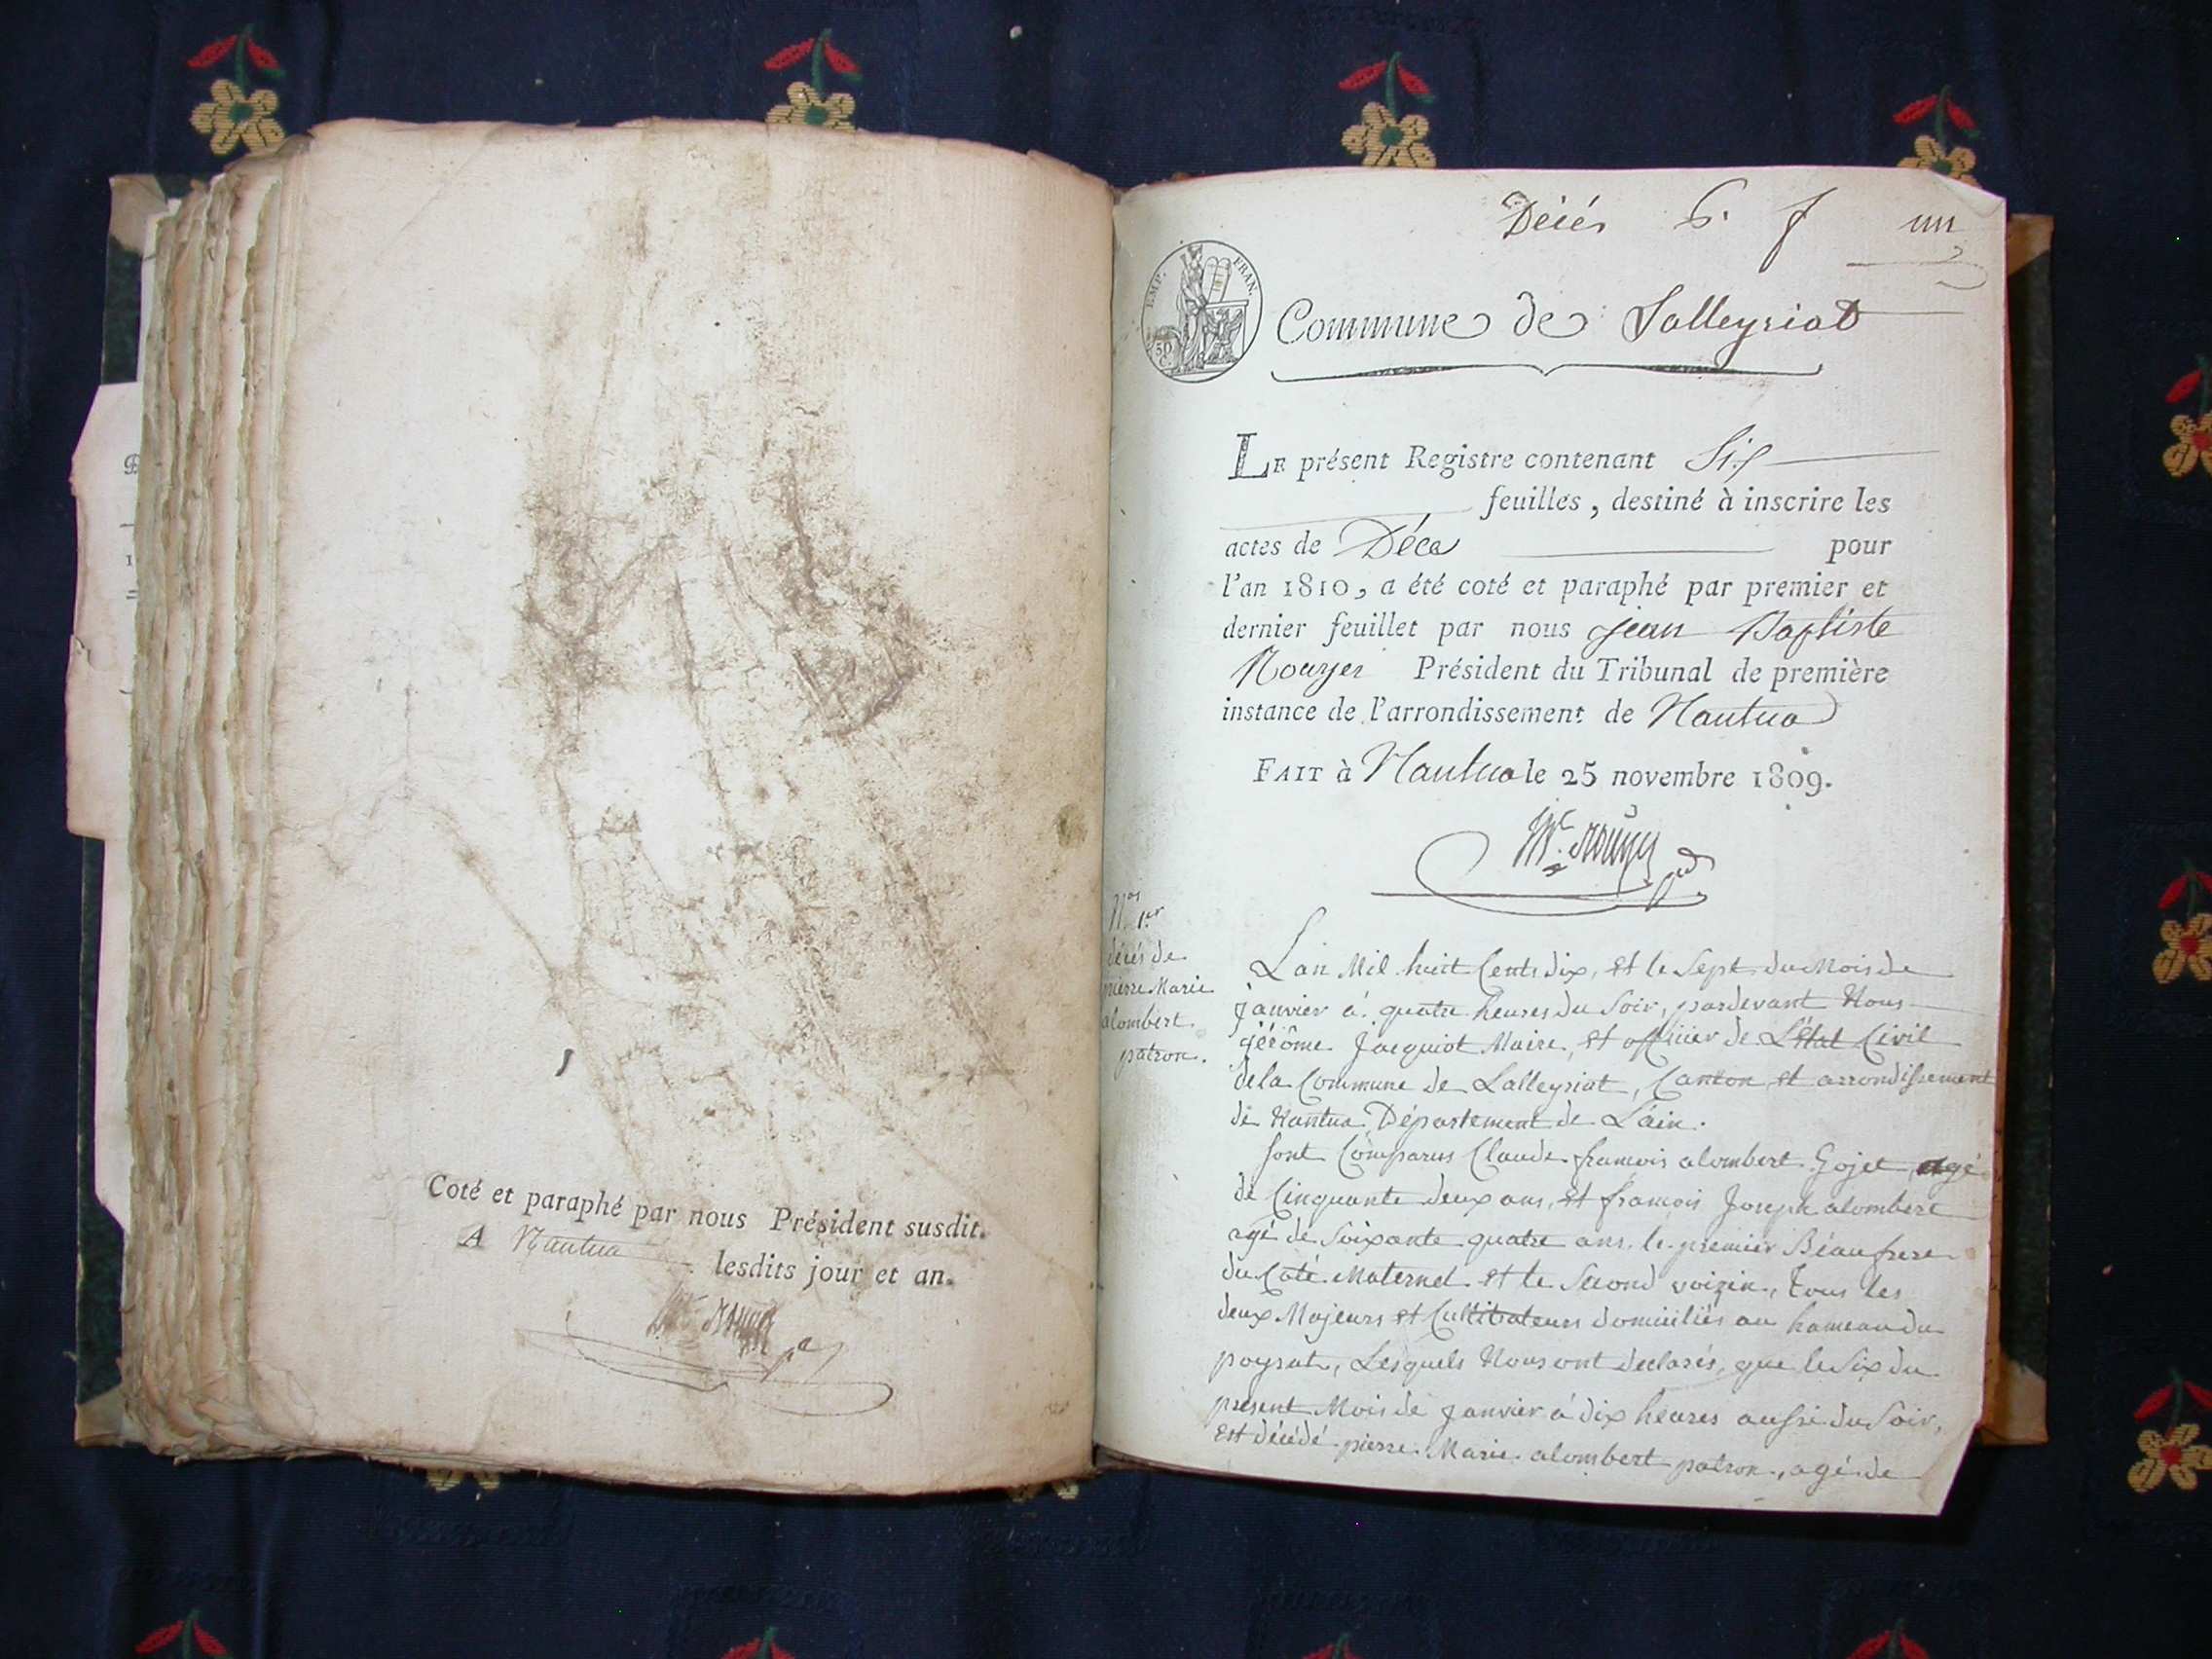 Coté et paraphé par nous Président susdit.
A Nantua lesdits jour et an.
Décés 6. f un
EMP. FRAN.
50 C.
Commune de Lalleyriat
LE présent Registre contenant Six
feuilles, destiné à inscrire les
actes de Décès pour
l'an 1810, a été coté et paraphé par premier et
dernier feuillet par nous Jean Baptiste
Rouyer Président du Tribunal de première
instance de l'arrondissement de Nantua
FAIT à Nantua le 25 novembre 1809.
Nos 1er
décés de
pierre Marie
alombert
patron.
Lan Mil huit Cents dix, et le Sept du Mois de
janvier à quatre heures du Soir, pardevant Nous
jérôme Jacquiot Maire, et officier de L'état Civil
de la Commune de Lalleyriat, Canton et arrondissement
de Nantua, Département de L'ain.
sont Comparus Claude françois alombert Gojet agé
de Cinquante deux ans, et françois Joseph alombert
agé de Soixante quatre ans, le premier Béaufrere
du Coté Maternel et le Second voizin, tous les
deux Majeurs et Cultibateurs domiciliés au hameau du
poyzat, Lesquels Nous ont declarés, que le Six du
présent Mois de janvier à dix heures aussi du Soir,
Est décédé pierre Marie alombert patron, agé de